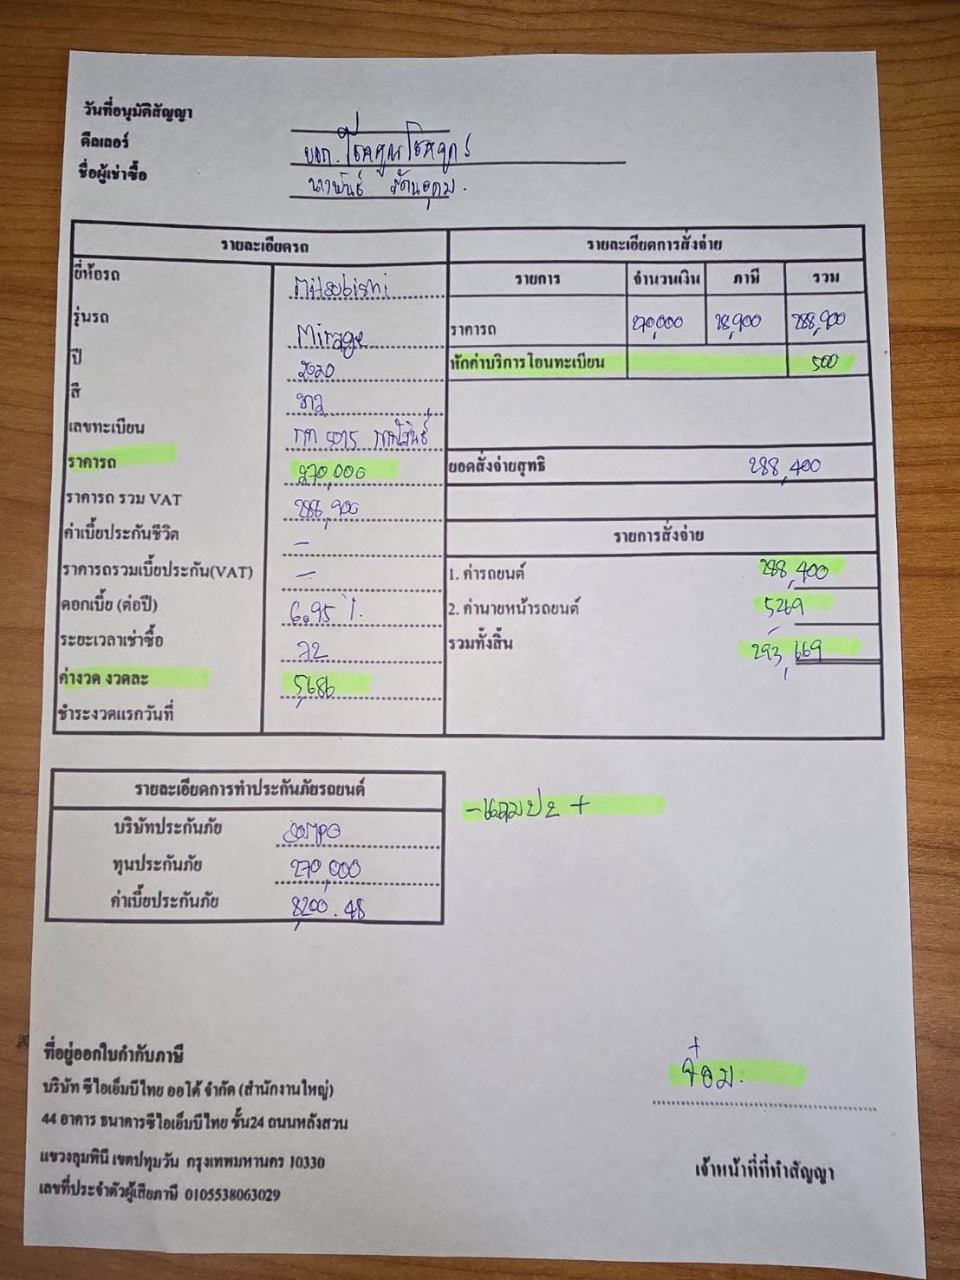 วันที่อนุมัติสัญญา
ดีลเลอร์ บจก. โชคคูณโชค
ชื่อผู้เช่าซื้อ
รายละเอียดรถ
ยี่ห้อรถ Mitsubishi
รุ่นรถ Mirage
ปี 2020
สี ขาว
เลขทะเบียน กาฬสินธุ์
ราคารถ 270,000
ราคารถ รวม VAT 288,900
ค่าเบี้ยประกันชีวิต -
ราคารถรวมเบี้ยประกัน(VAT) -
ดอกเบี้ย (ต่อปี) 6.95 %
ระยะเวลาเช่าซื้อ 72
ค่างวด งวดละ 5,686
ชำระงวดแรกวันที่
รายละเอียดการสั่งจ่าย
รายการ จำนวนเงิน ภาษี รวม
ราคารถ 270,000 18,900 288,900
หักค่าบริการโอนทะเบียน 500
ยอดสั่งจ่ายสุทธิ 288,400
รายการสั่งจ่าย
1. ค่ารถยนต์ 288,400
2. ค่านายหน้ารถยนต์ 5,269
รวมทั้งสิ้น 293,669
รายละเอียดการทำประกันภัยรถยนต์
บริษัทประกันภัย
ทุนประกันภัย 270,000
ค่าเบี้ยประกันภัย 8,200.48
- แถมปช +
ที่อยู่ออกใบกำกับภาษี
บริษัท ซีไอเอ็มบีไทย ออโต้ จำกัด (สำนักงานใหญ่)
44 อาคาร ธนาคารซีไอเอ็มบีไทย ชั้น24 ถนนหลังสวน
แขวงลุมพินี เขตปทุมวัน กรุงเทพมหานคร 10330
เลขที่ประจำตัวผู้เสียภาษี 0105538063029
เจ้าหน้าที่ที่ทำสัญญา